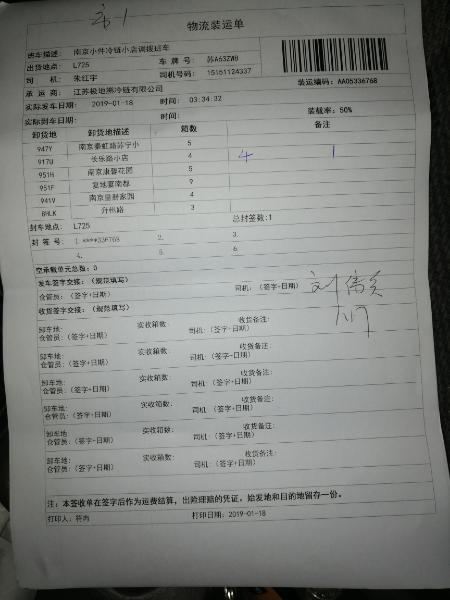 物流装运单
班车描述: 南京小件冷链小店调拨班车
出货地点: L725 车牌号: 苏A63ZW8
司机: 朱红宇 司机号码: 15151124337
承运商: 江苏极地熊冷链有限公司 装运编码: AA05336768
实际发车日期: 2019-01-18 时间: 03:34:32
实际到车日期: 时间: 装载率: 50%
卸货地 卸货地描述 箱数 备注
947Y 南京秦虹路苏宁小 5
917U 长乐路小店 4 4 1
951H 南京康馨花园 5
951F 复地宴南都 9
941V 南京皇册家园 4
8HLK 升州路 3
封车地点: L725 总封签数:1
封签号: 1.****336768 2. 3.
4. 5. 6.
空承载单元总数: 0
发车签字交接: (规范填写)
仓管员: (签字+日期) 司机: (签字+日期)
收货签字交接: (规范填写)
卸车地: 实收箱数: 收货备注:
仓管员: (签字+日期) 司机: (签字+日期)
卸车地: 实收箱数: 收货备注:
仓管员: (签字+日期) 司机: (签字+日期)
卸车地: 实收箱数: 收货备注:
仓管员: (签字+日期) 司机: (签字+日期)
卸车地: 实收箱数: 收货备注:
仓管员: (签字+日期) 司机: (签字+日期)
卸车地: 实收箱数: 收货备注:
仓管员: (签字+日期) 司机: (签字+日期)
卸车地: 实收箱数: 收货备注:
仓管员: (签字+日期) 司机: (签字+日期)
注: 本签收单在签字后作为运费结算, 出险理赔的凭证, 始发地和目的地留存一份。
打印人: 符冉 打印日期: 2019-01-18